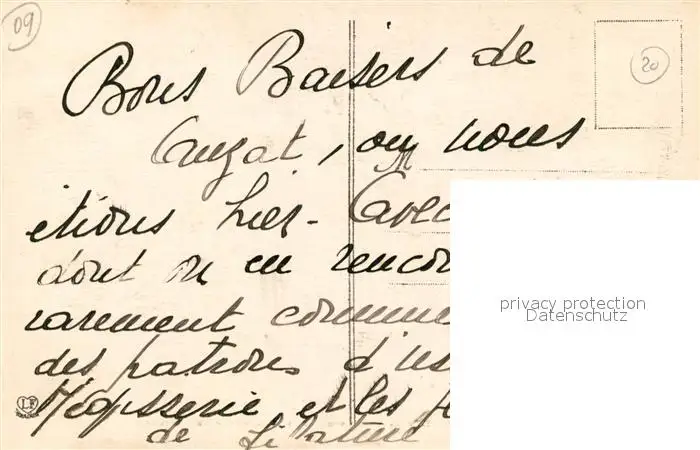 09
20
Bons Baisers de
Auzat, ou nous
M
etions hier - Avec
dont on en rencon
rarement comme
des patrons d'us
Megisserie et les
de filature
privacy protection
Datenschutz